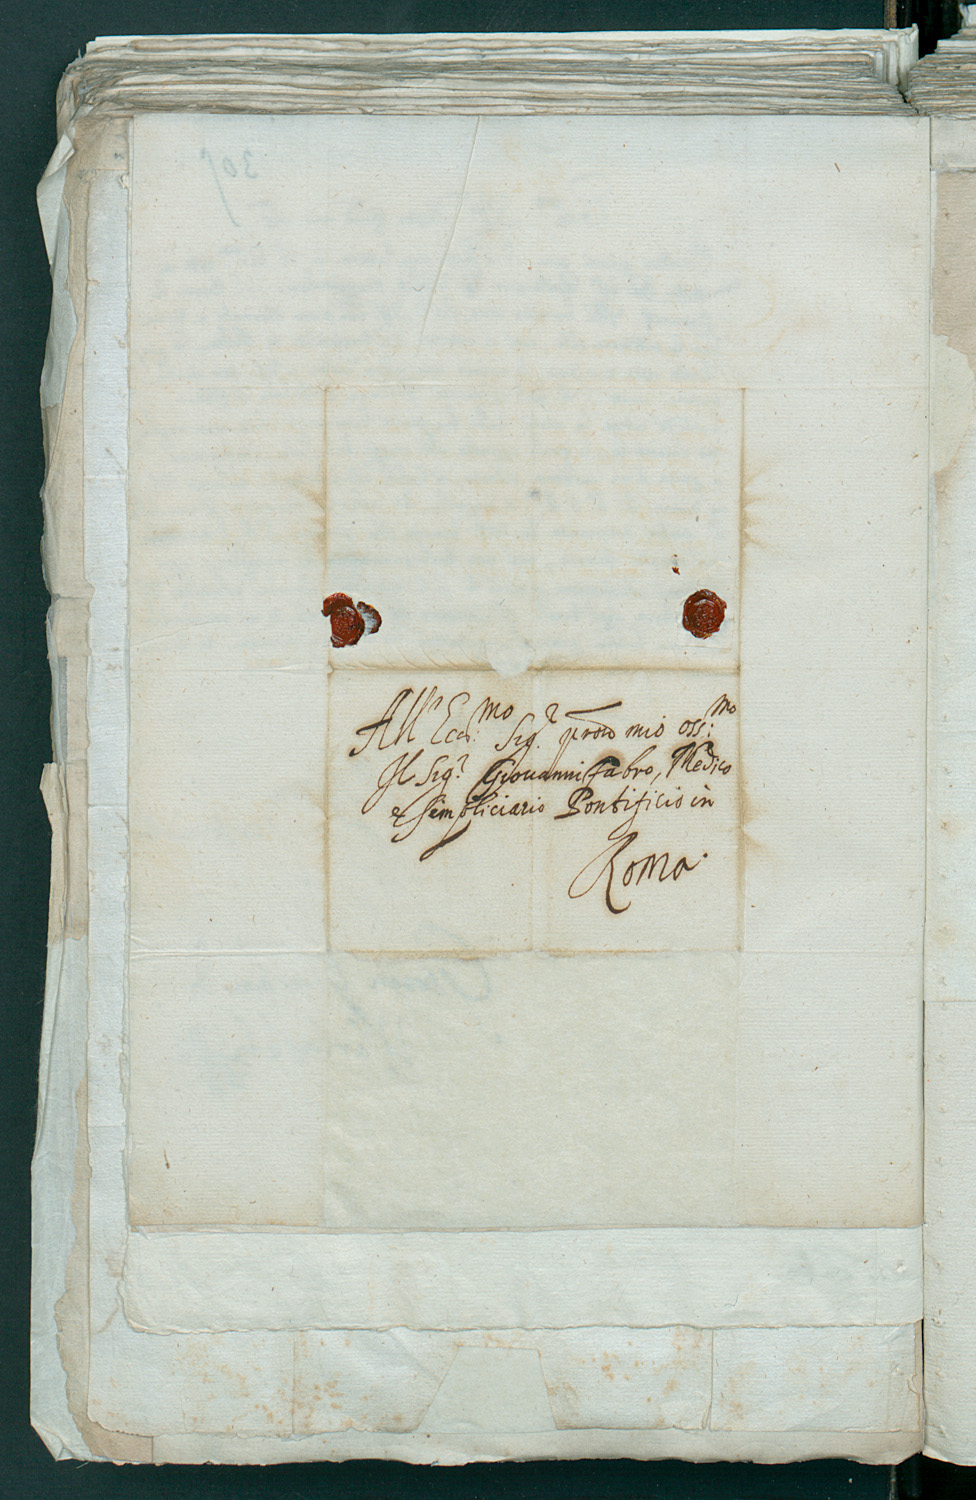 All' Ecc.mo Sig.r pron mio oss:mo
Il Sig.r Giouanni Fabro, Medico
e Simpliciario Pontificio in
Roma.